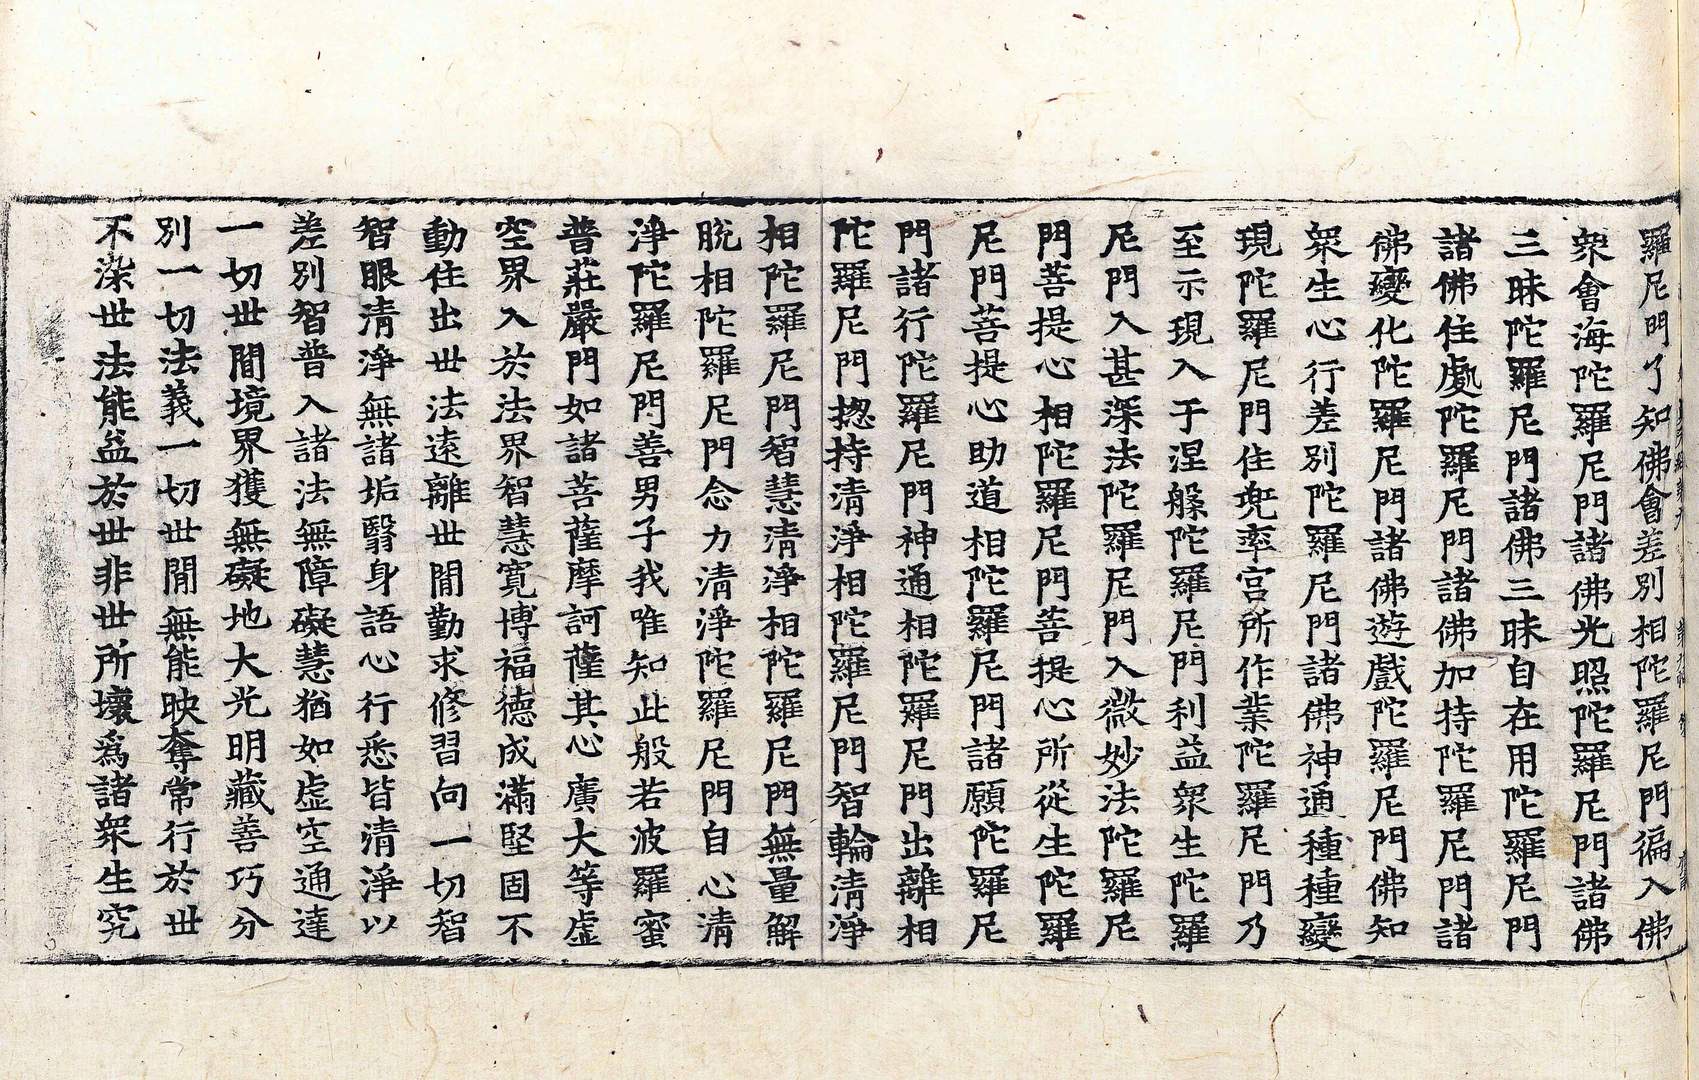 羅尼門了知佛會差別相陀羅尼門徧入佛
衆會海陀羅尼門諸佛光照陀羅尼門諸佛
三昧陀羅尼門諸佛三昧自在用陀羅尼門
諸佛住處陀羅尼門諸佛加持陀羅尼門諸
佛變化陀羅尼門諸佛遊戲陀羅尼門佛知
衆生心行差別陀羅尼門諸佛神通種種變
現陀羅尼門住兠率宫所作業陀羅尼門乃
至示現入于涅槃陀羅尼門利益衆生陀羅
尼門入甚深法陀羅尼門入微妙法陀羅尼
門菩提心相陀羅尼門菩提心所從生陀羅
尼門菩提心助道相陀羅尼門諸願陀羅尼
門諸行陀羅尼門神通相陀羅尼門出離相
陀羅尼門揔持清淨相陀羅尼門智輪清淨
相陀羅尼門智慧清淨相陀羅尼門無量解
脫相陀羅尼門念力清淨陀羅尼門自心清
淨陀羅尼門善男子我唯知此般若波羅蜜
普莊嚴門如諸菩薩摩訶薩其心廣大等虛
空界入於法界智慧寬博福德成滿堅固不
動住出世法遠離世閒勤求修習向一切智
智眼清淨無諸垢翳身語心行悉皆清淨以
差別智普入諸法無障礙慧猶如虛空通達
一切世閒境界獲無礙地大光明藏善巧分
別一切法義一切世閒無能映奪常行於世
不染世法能益於世非世所壞爲諸衆生究